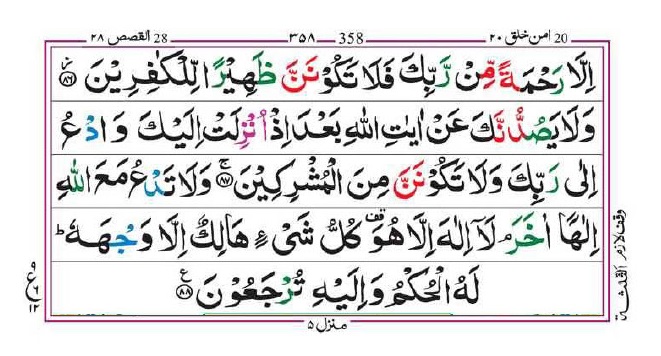 امن خلق ٢٠ 20
٣٥٨ 358
القصص ٢٨ 28
اِلَّا رَحْمَةً مِّنْ رَّبِّكَ فَلَا تَكُوْنَنَّ ظَهِيْرًا لِّلْكٰفِرِيْنَ ﴿٨٦﴾
وَلَا يَصُدُّنَّكَ عَنْ اٰيٰتِ اللّٰهِ بَعْدَ اِذْ اُنْزِلَتْ اِلَيْكَ وَادْعُ
اِلٰى رَبِّكَ وَلَا تَكُوْنَنَّ مِنَ الْمُشْرِكِيْنَ ۚ ﴿٨٧﴾ وَلَا تَدْعُ مَعَ اللّٰهِ
اِلٰهًا اٰخَرَ ۘ لَآ اِلٰهَ اِلَّا هُوَ ۫ كُلُّ شَىْءٍ هَالِكٌ اِلَّا وَجْهَهٗ ؕ
لَهُ الْحُكْمُ وَاِلَيْهِ تُرْجَعُوْنَ ﴿٨٨﴾
منزل ٥
وقف لازم
ع